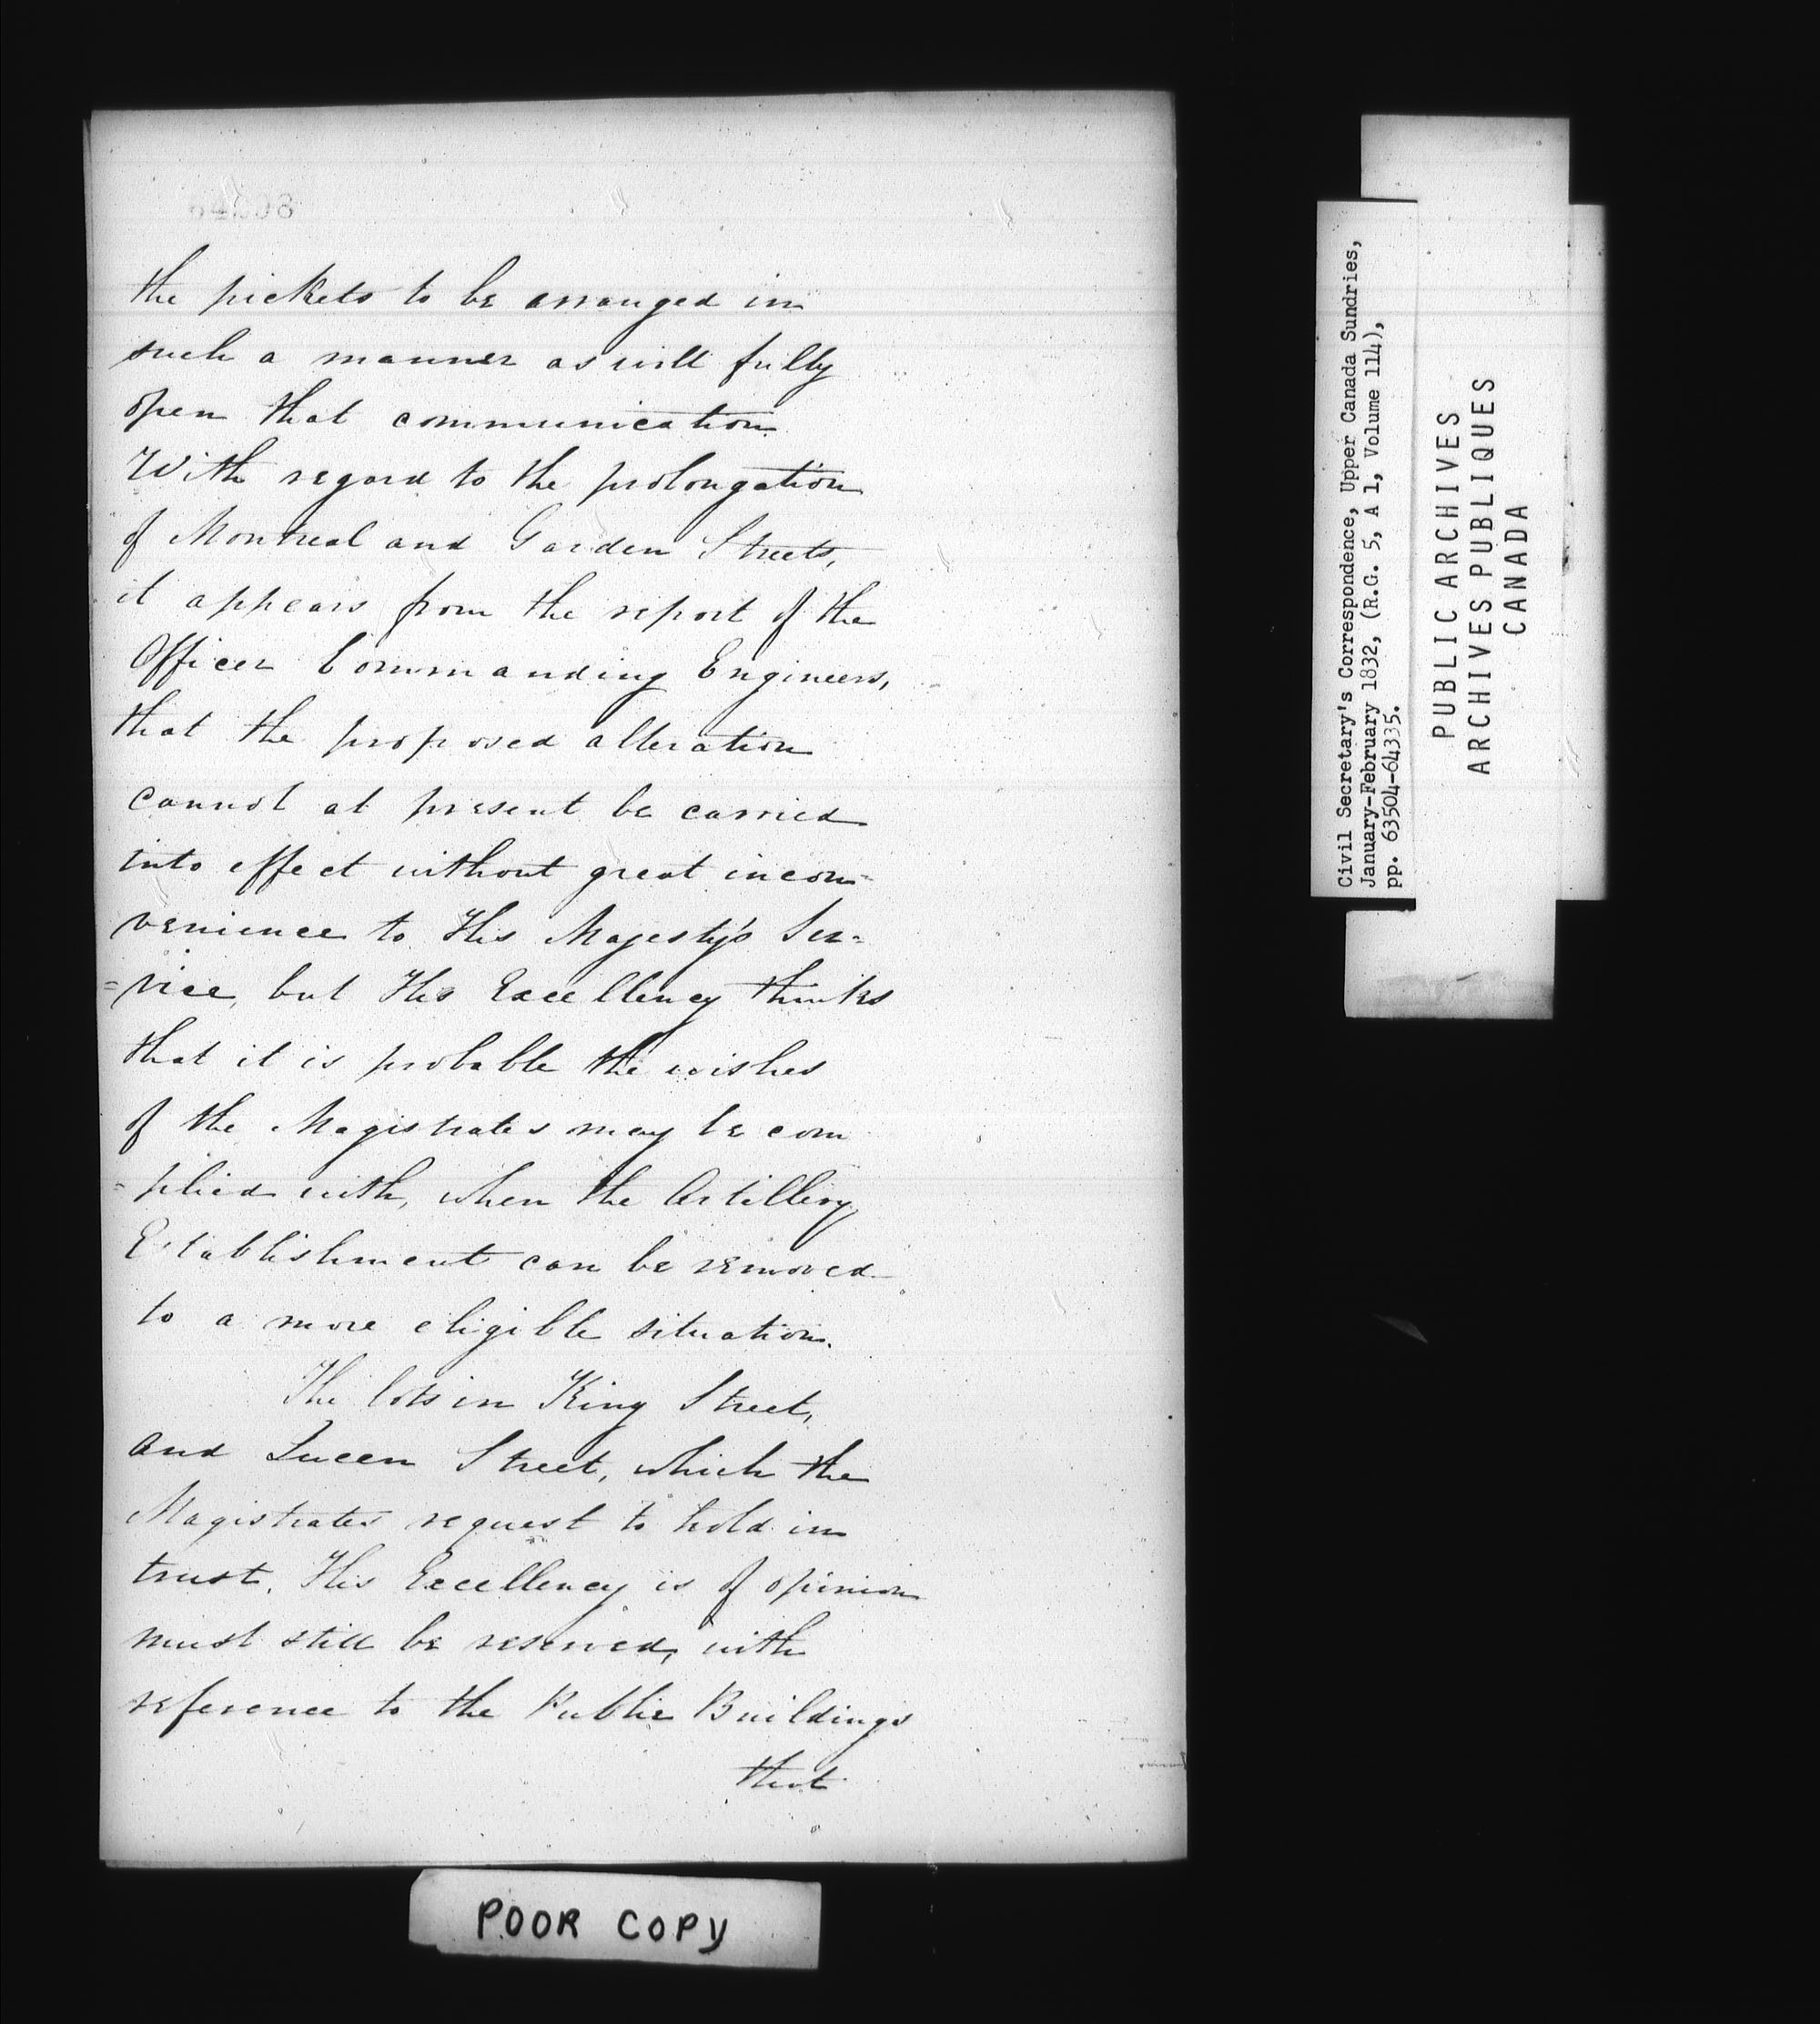 the pickets to be arranged in
such a manner as will fully
open that communication
With regard to the prolongation
of Montreal and Garden Streets,
it appears from the report of the
Officer Commanding Engineers,
that the proposed alteration
cannot at present be carried
into effect without great incon-
venience to His Majesty's Ser=
=vice, but His Excellency thinks
that it is probable the wishes
of the Magistrates may be com
=plied with, when the Artillery
Establishment can be removed
to a more eligible situation.
The lots in King Street,
and Queen Street, which the
Magistrates request to hold in
trust, His Excellency is of opinion
must still be reserved, with
reference to the Public Buildings
that
POOR COPY
Civil Secretary's Correspondence, Upper Canada Sundries,
January-February 1832, (R.G. 5, A 1, Volume 114),
pp. 63504-64335.
PUBLIC ARCHIVES
ARCHIVES PUBLIQUES
CANADA